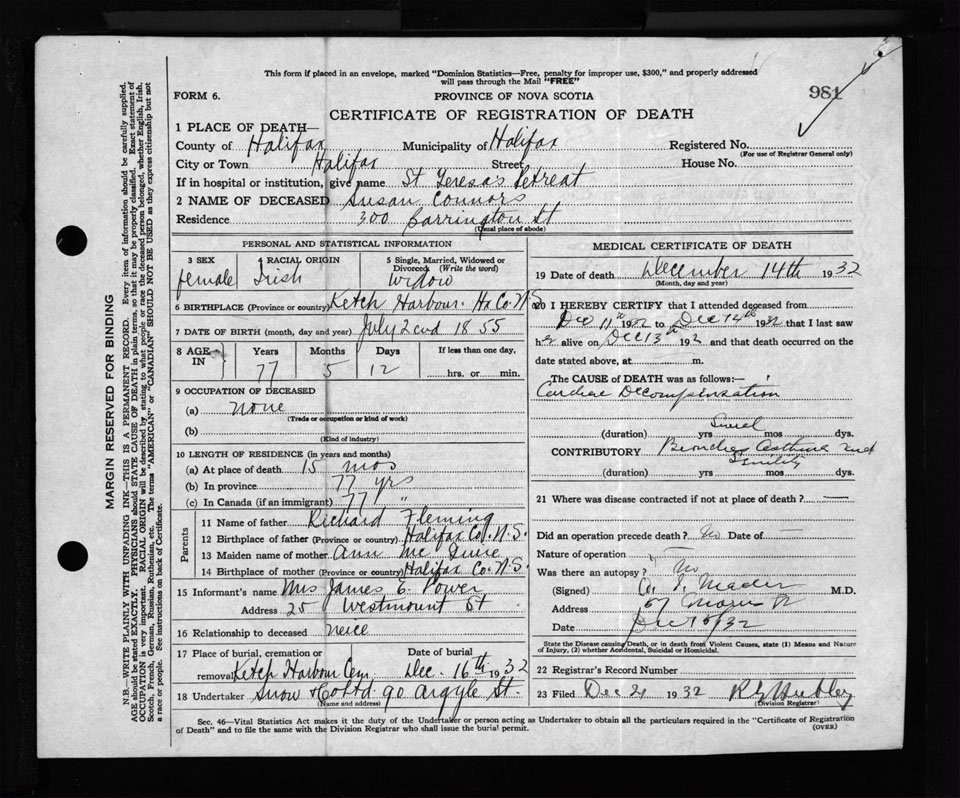 This form if placed in an envelope, marked "Dominion Statistics—Free, penalty for improper use, $300," and properly addressed
will pass through the Mail "FREE"
FORM 6. PROVINCE OF NOVA SCOTIA 981
CERTIFICATE OF REGISTRATION OF DEATH
1 PLACE OF DEATH—
County of Halifax Municipality of Halifax Registered No.
(For use of Registrar General only)
City or Town Halifax Street House No.
If in hospital or institution, give name St Teresa's Retreat
2 NAME OF DECEASED Susan Connors
Residence 300 Barrington St
(Usual place of abode)
PERSONAL AND STATISTICAL INFORMATION
3 SEX 4 RACIAL ORIGIN 5 Single, Married, Widowed or
Divorced (Write the word)
female Irish Widow
6 BIRTHPLACE (Province or country) Ketch Harbour. Hx Co. N.S
7 DATE OF BIRTH (month, day and year) July 2nd 1855
8 AGE IN Years Months Days If less than one day,
77 5 12 hrs. or min.
9 OCCUPATION OF DECEASED
(a) none
(Trade or occupation or kind of work)
(b)
(Kind of industry)
10 LENGTH OF RESIDENCE (in years and months)
(a) At place of death 15 mos
(b) In province 77 yrs
(c) In Canada (if an immigrant) 77 "
Parents
11 Name of father Richard Fleming
12 Birthplace of father (Province or country) Halifax Co. N.S.
13 Maiden name of mother Ann Mc
14 Birthplace of mother (Province or country) Halifax Co. N.S.
15 Informant's name Mrs James E. Power
Address 25 Westmount St
16 Relationship to deceased neice
17 Place of burial, cremation or Date of burial
removal Ketch Harbour Cem Dec. 16th 1932
18 Undertaker Snow & Co Ltd 90 Argyle St.
(Name and address)
MEDICAL CERTIFICATE OF DEATH
19 Date of death December 14th 1932
(Month, day and year)
20 I HEREBY CERTIFY that I attended deceased from
Dec 11th 1932 to Dec 14th 1932 that I last saw
her alive on Dec 13th 192 and that death occurred on the
date stated above, at m.
The CAUSE of DEATH was as follows:—
Cardiac Decompensation
(duration) yrs mos dys.
CONTRIBUTORY Bronchial Asthma and
Senility
(duration) yrs mos dys.
21 Where was disease contracted if not at place of death? —
Did an operation precede death? No Date of —
Nature of operation —
Was there an autopsy? No
(Signed) Mader M.D.
Address 57 Morris St
Date Dec 15/32
State the Disease causing Death, or in death from Violent Causes, state (1) Means and Nature
of Injury, (2) whether Accidental, Suicidal or Homicidal.
22 Registrar's Record Number
23 Filed Dec 21 1932
(Division Registrar)
Sec. 46—Vital Statistics Act makes it the duty of the Undertaker or person acting as Undertaker to obtain all the particulars required in the "Certificate of Registration
of Death" and to file the same with the Division Registrar who shall issue the burial permit. (OVER)
MARGIN RESERVED FOR BINDING
N.B.—WRITE PLAINLY WITH UNFADING INK—THIS IS A PERMANENT RECORD. Every item of information should be carefully supplied.
AGE should be stated EXACTLY. PHYSICIANS should STATE CAUSE OF DEATH in plain terms, so that it may be properly classified. Exact statement of
OCCUPATION is very important. RACIAL ORIGIN will be described by stating to what people or race the deceased person belonged, whether English, Irish,
Scotch, French, German, Russian, Ruthenian, etc. The terms "AMERICAN" or "CANADIAN" SHOULD NOT BE USED as they express citizenship but not
a race or people. See instructions on back of Certificate.